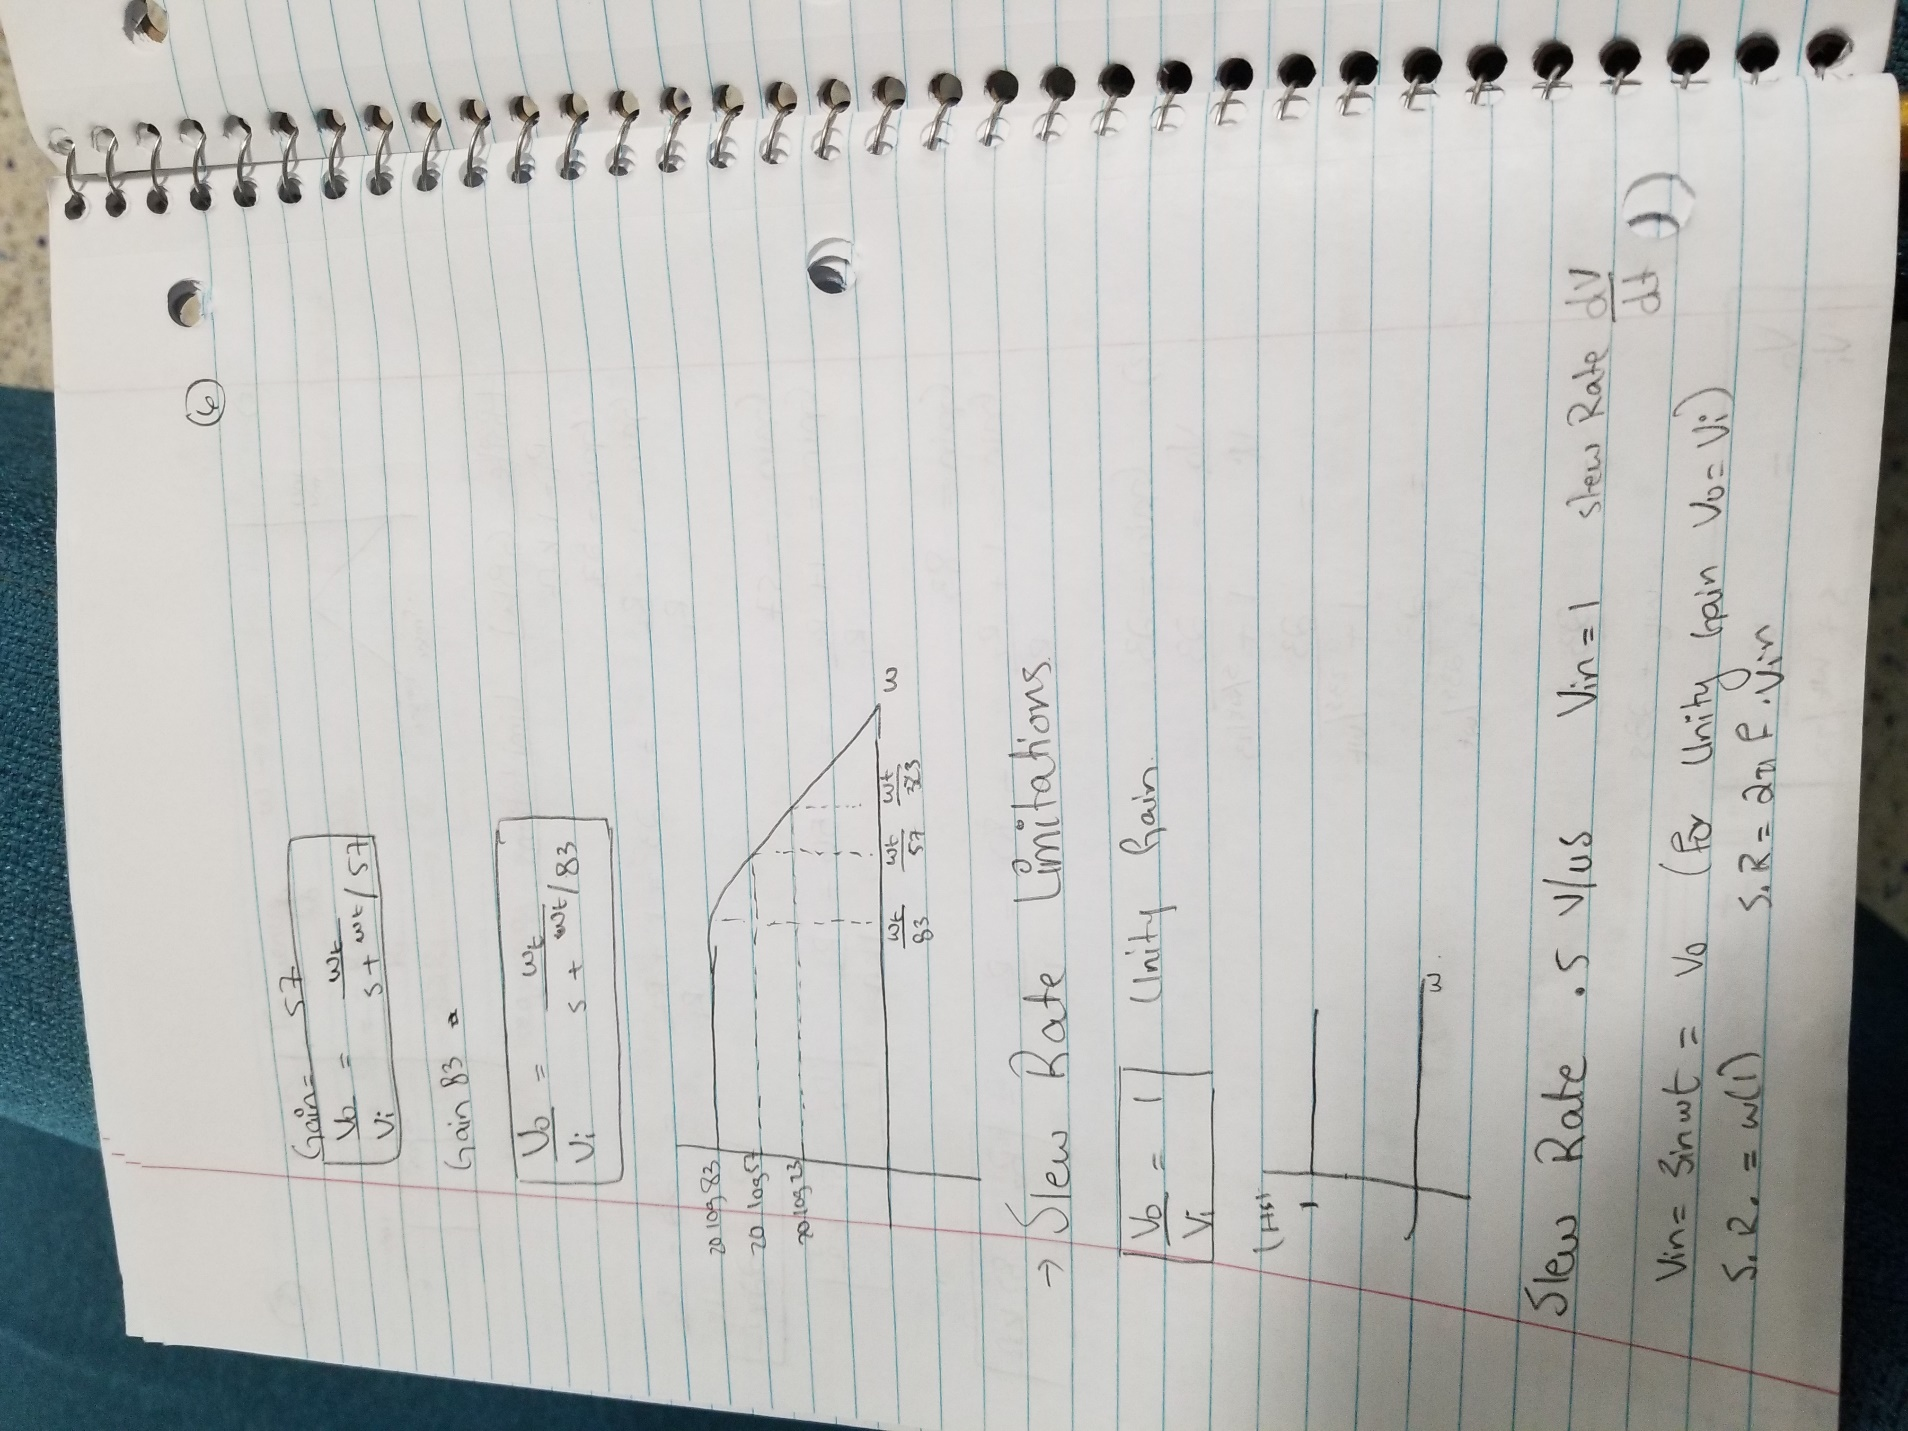 6
Gain = 57
Vo/Vi = wt/(s + wt/57)
Gain 83
Vo/Vi = wt/(s + wt/83)
20 log 83
20 log 57
20 log 23
wt/83 wt/57 w
→ Slew Rate Limitations
Vo/Vi = 1 Unity Gain
1
w
Slew Rate .5 V/us Vin = 1 slew Rate dV/dt
Vin = Sinwt = Vo (For Unity Gain Vo = Vi)
S.R. = w(1) S.R = 2π f . Vin